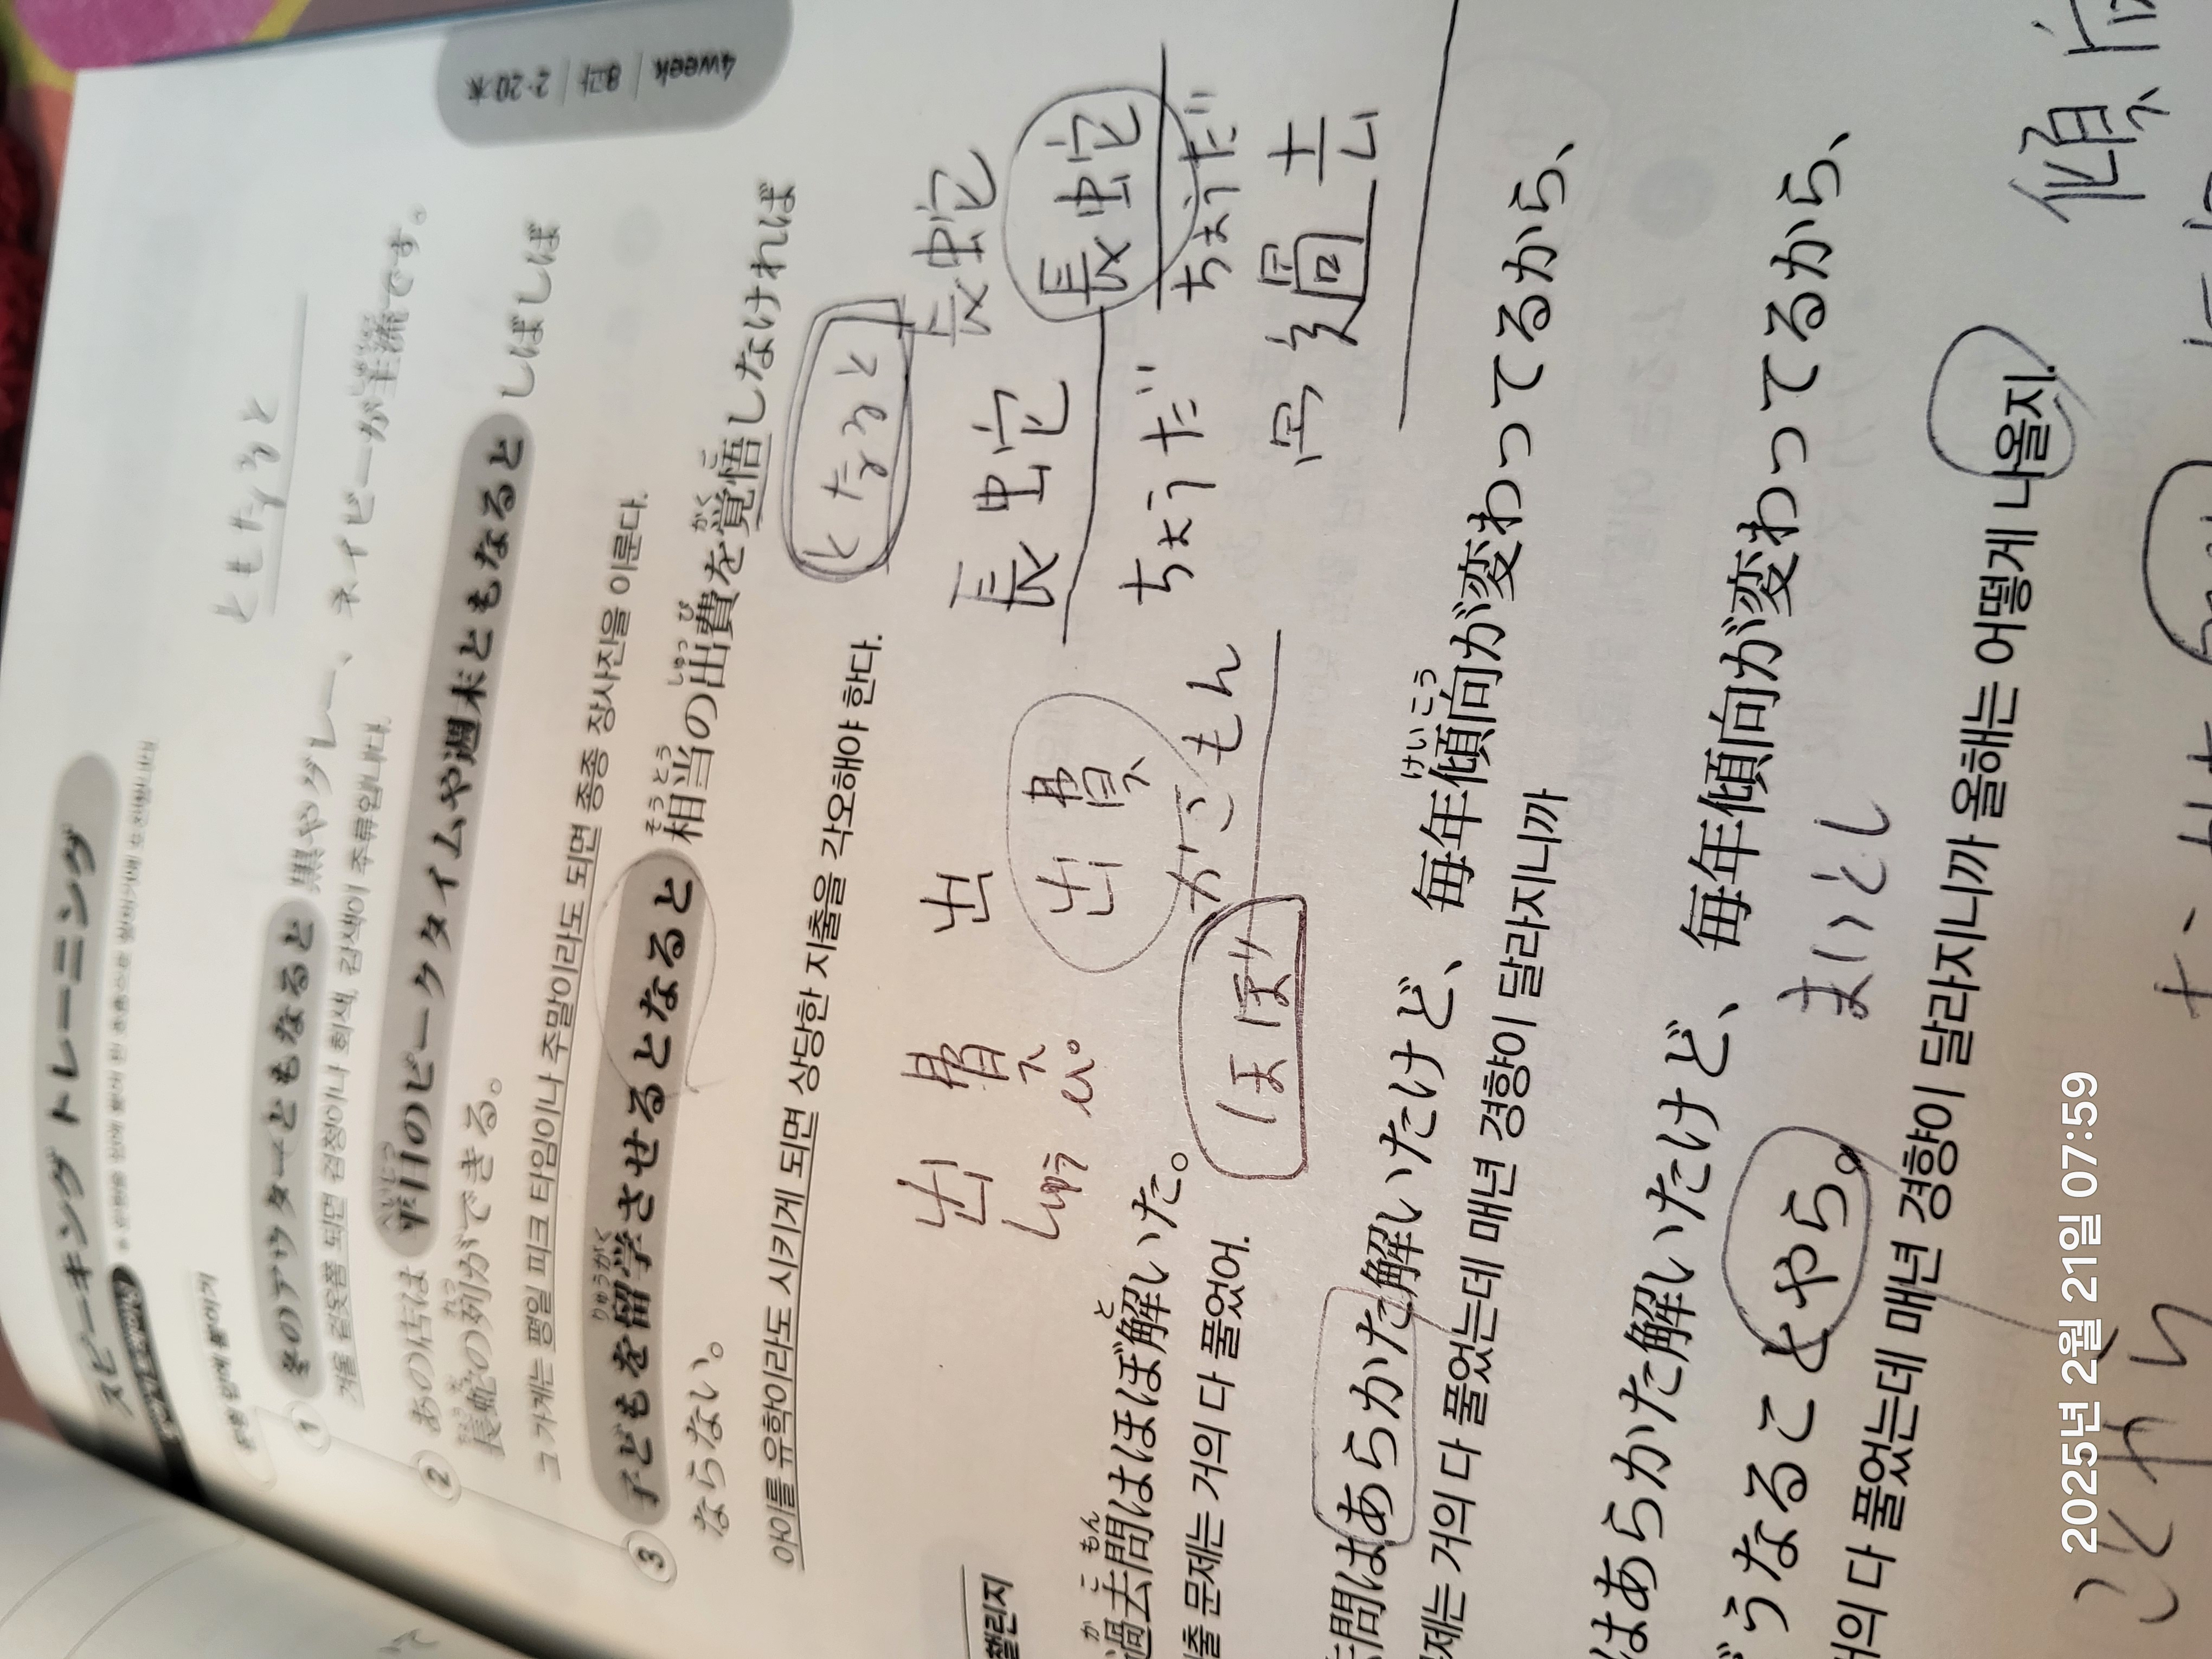 4week | 8과 | 2·20 木
スピーキング トレーニング
문형 앞에 붙이기
ともなると
① 冬のアウターともなると 黒やグレー、ネイビーが主流です。
겨울 겉옷쯤 되면 검정이나 회색, 감색이 주류입니다.
② あの店は 平日のピークタイムや週末ともなると しばしば
長蛇の列ができる。
그 가게는 평일 피크 타임이나 주말이라도 되면 종종 장사진을 이룬다.
③ 子どもを留学させるとなると 相当の出費を覚悟しなければ
ならない。
아이를 유학이라도 시키게 되면 상당한 지출을 각오해야 한다.
となると
出費 出 長蛇
しゅっぴ
出費 長蛇 長蛇
かこもん ちょうだ ちょうだ
ほぼ
過去
챌린지
過去問はほぼ解いた。
출 문제는 거의 다 풀었어.
去問はあらかた解いたけど、毎年傾向が変わってるから、
제는 거의 다 풀었는데 매년 경향이 달라지니까
はあらかた解いたけど、毎年傾向が変わってるから、
まいとし
うなることやら。
거의 다 풀었는데 매년 경향이 달라지니까 올해는 어떻게 나올지.
傾向
2025년 2월 21일 07:59